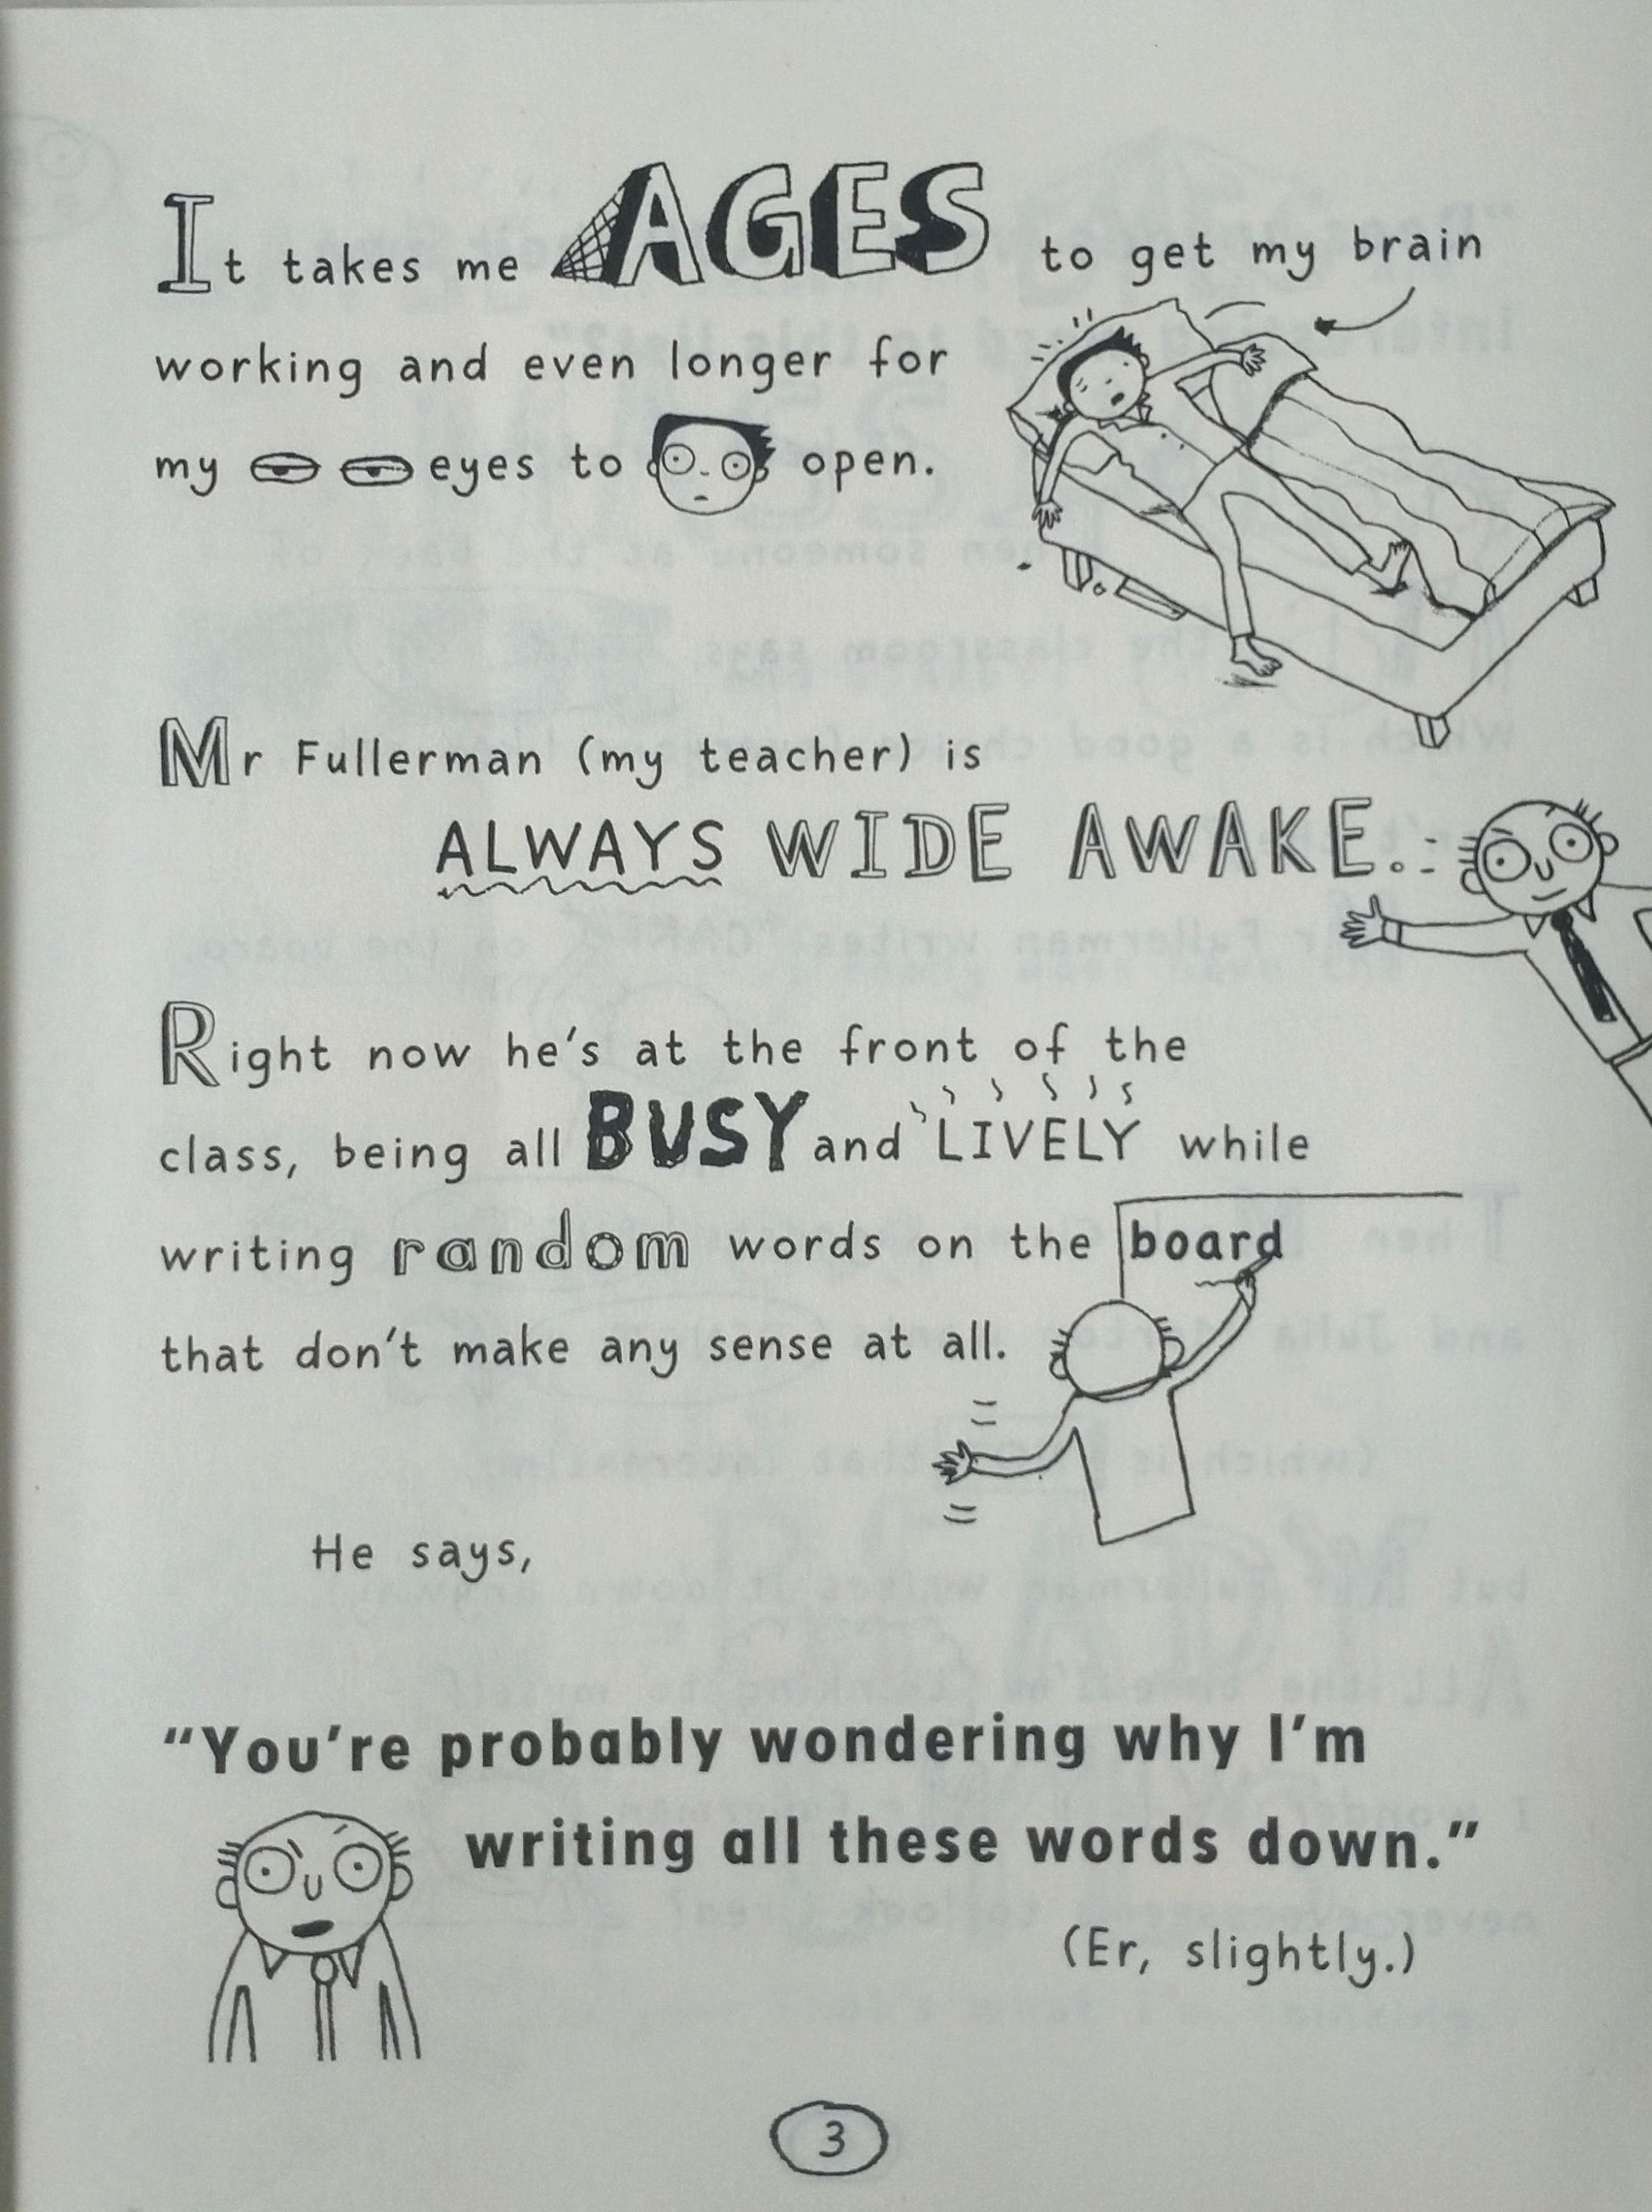 It takes me AGES to get my brain
working and even longer for
my eyes to open.
Mr Fullerman (my teacher) is
ALWAYS WIDE AWAKE.
Right now he's at the front of the
class, being all BUSY and LIVELY while
writing random words on the board
that don't make any sense at all.
He says,
"You're probably wondering why I'm
writing all these words down."
(Er, slightly.)
3